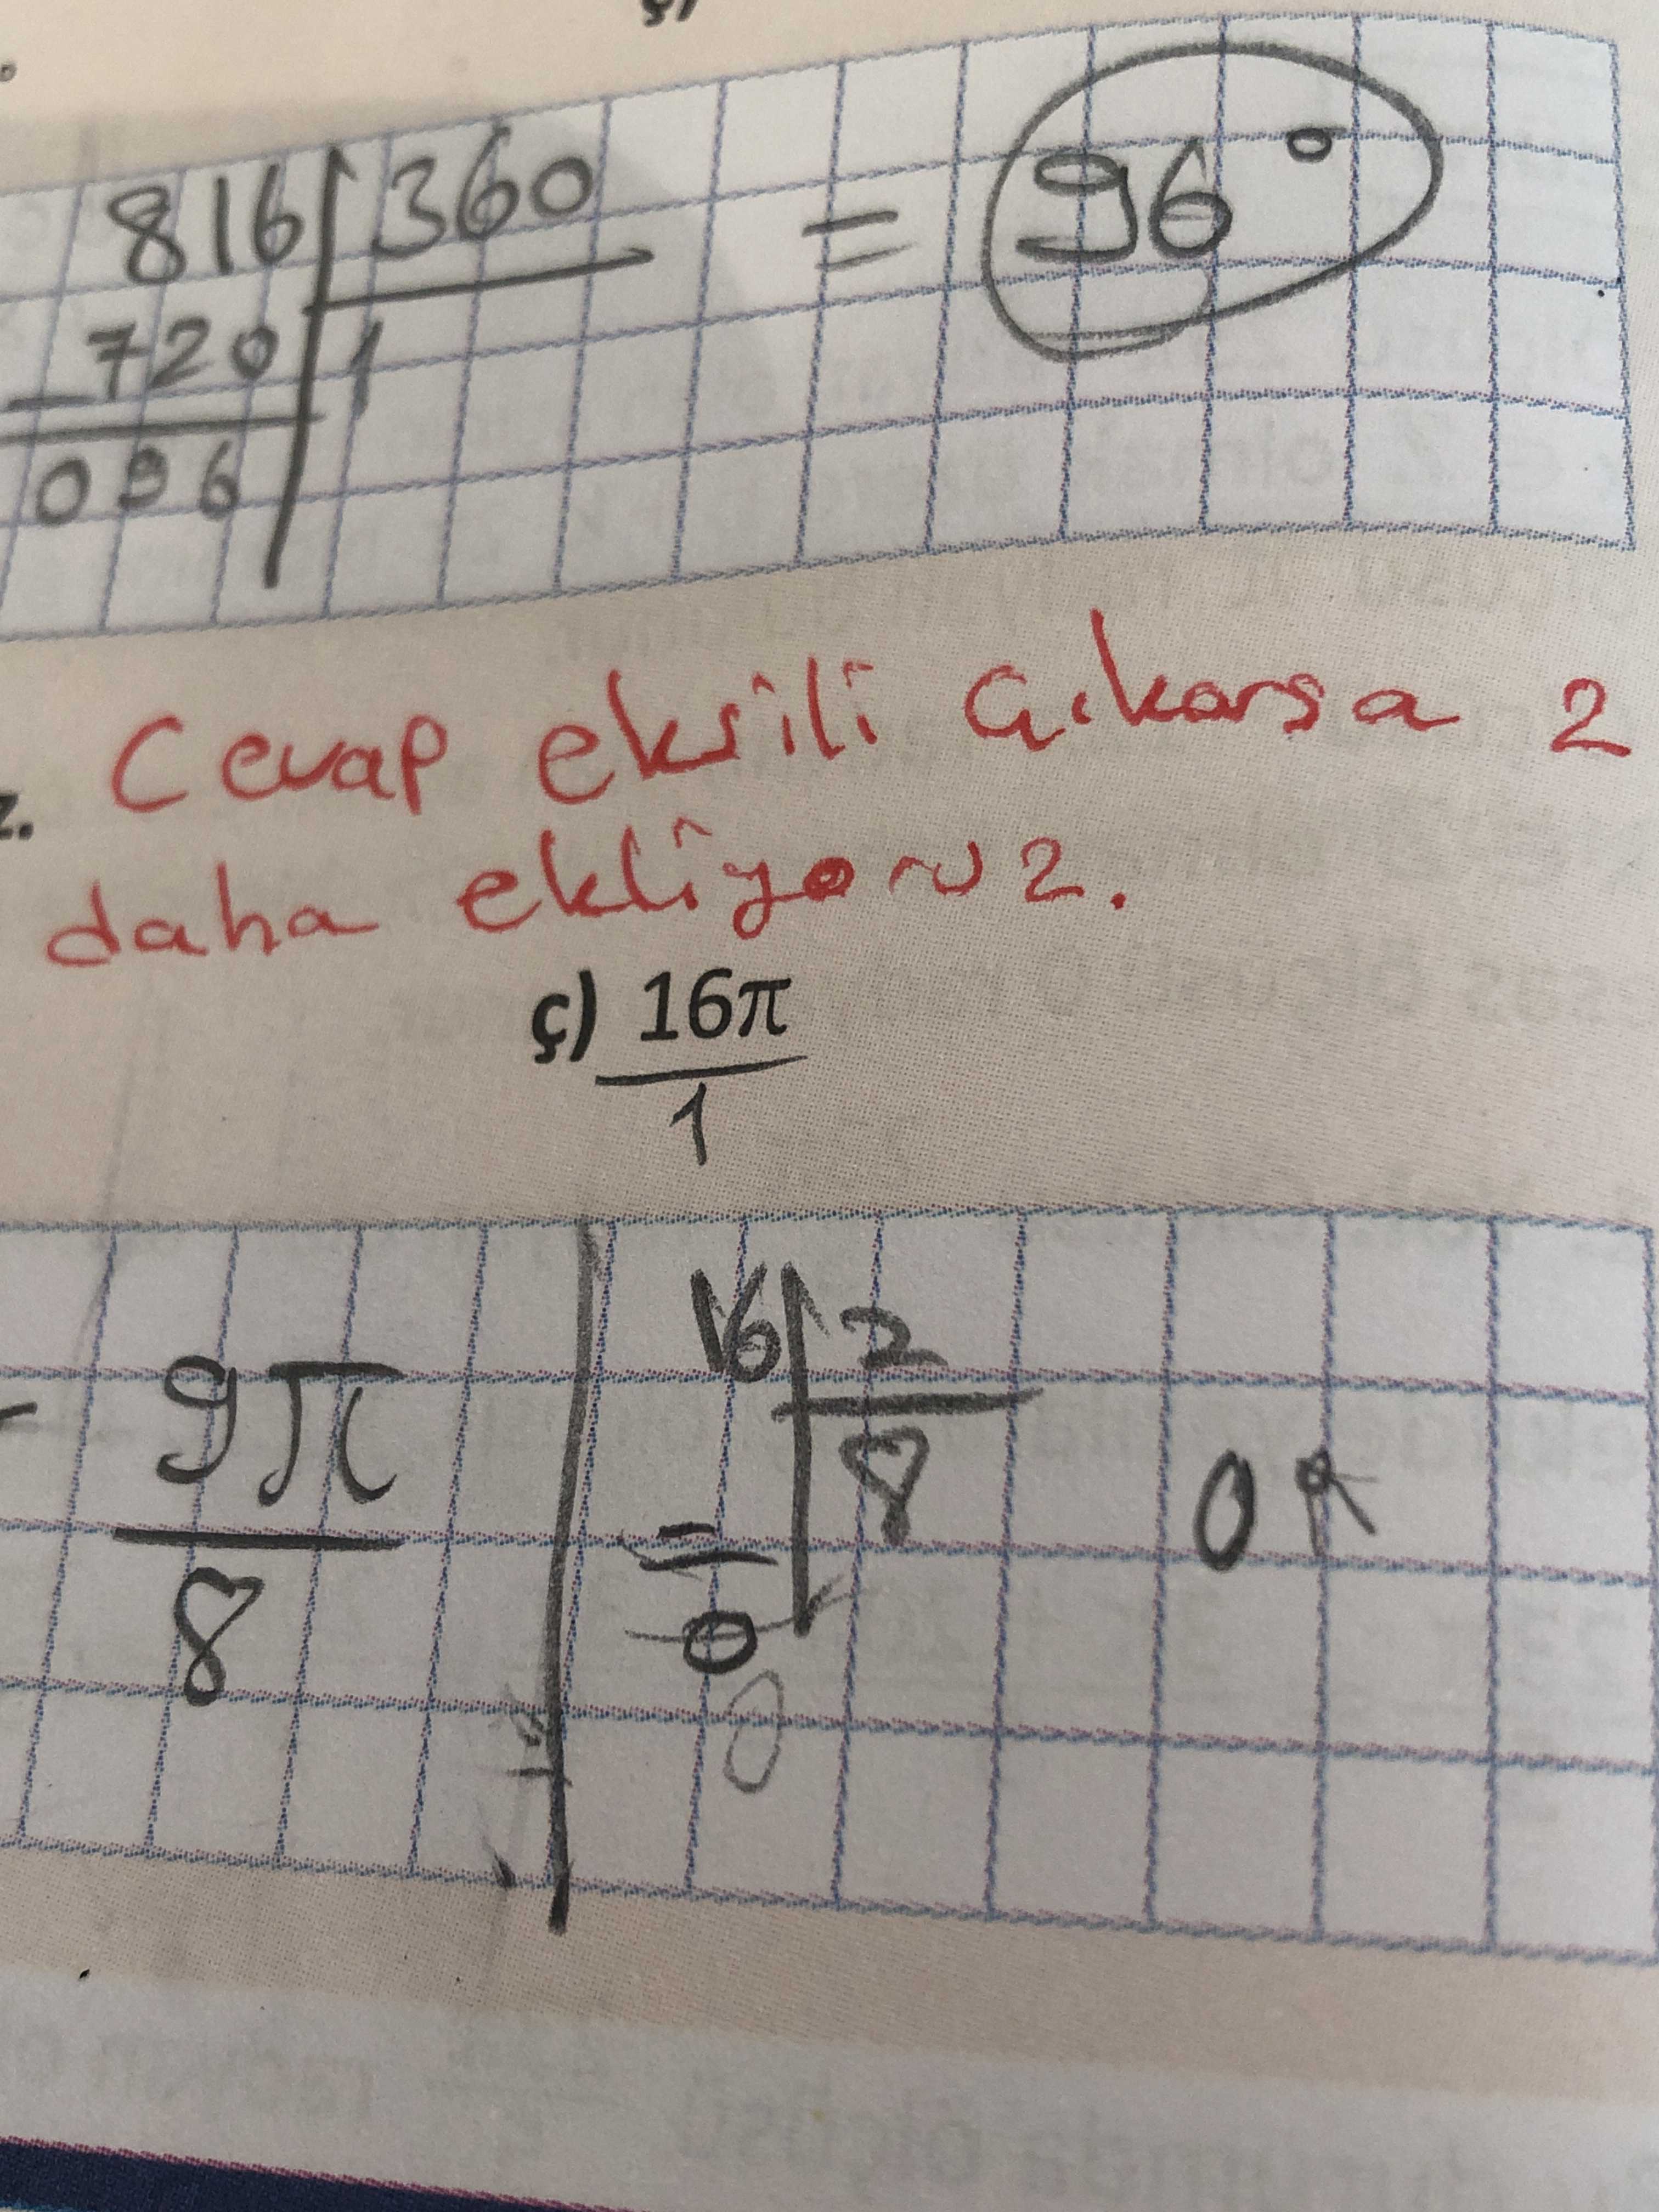 816 | 360 = 96°
- 720 | 1
096
z. Cevap eksili çıkarsa 2
daha ekliyoruz.
ç) 16π
1
16 | 2
- 9π 8 0
8 = 0
0